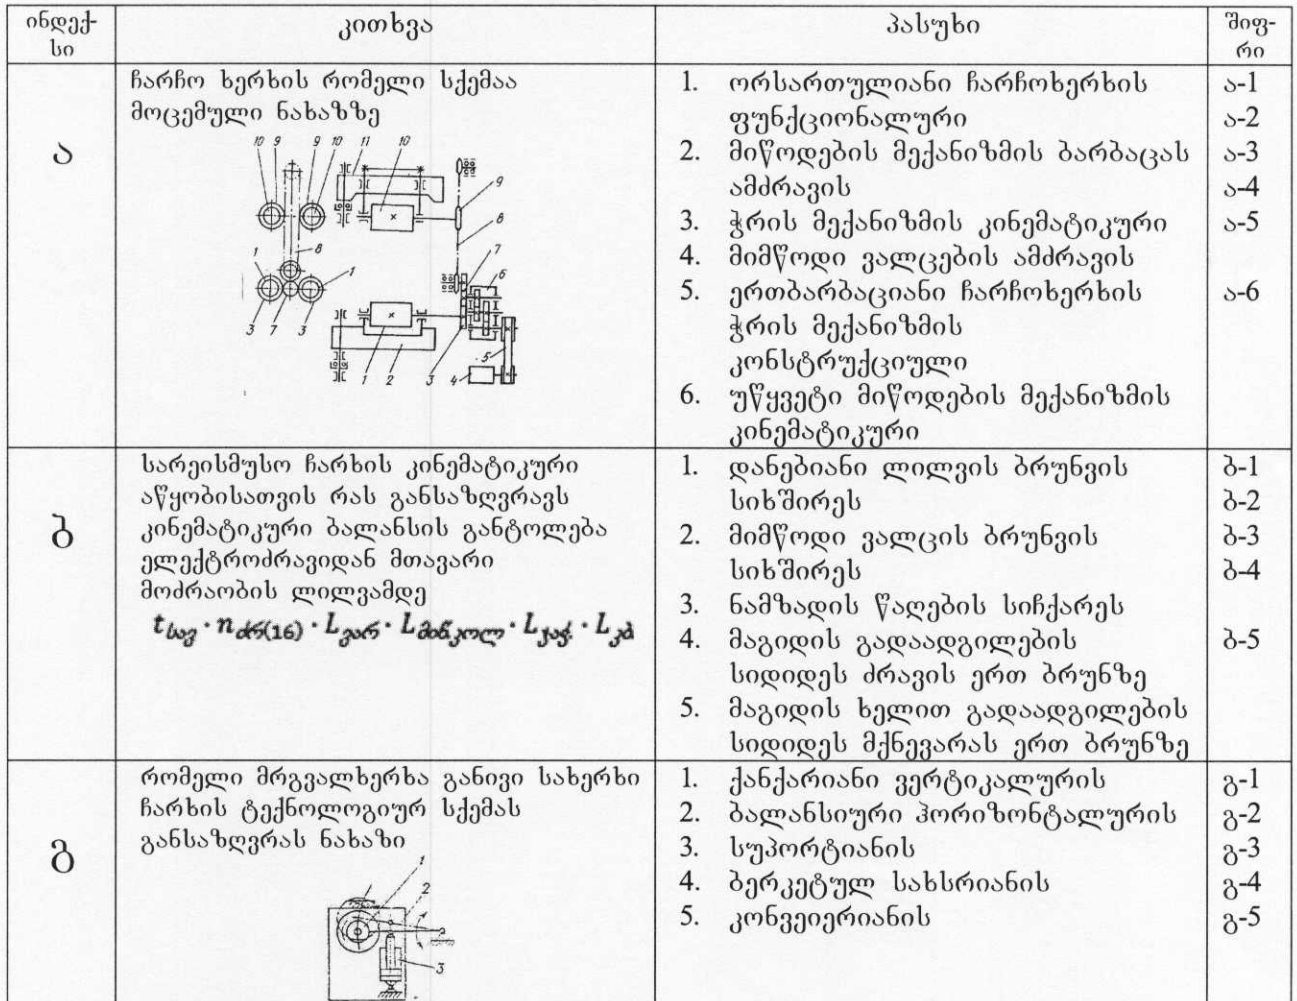 ინდექ-
სი
კითხვა
პასუხი
შიფ-
რი
ა
ჩარჩო ხერხის რომელი სქემაა
მოცემული ნახაზზე
10 9 9 10 11 10
9
8
7
6
8
1 1
3 7 3
1 2 3 4 5
1. ორსართულიანი ჩარჩოხერხის
ფუნქციონალური
2. მიწოდების მექანიზმის ბარბაცას
ამძრავის
3. ჭრის მექანიზმის კინემატიკური
4. მიმწოდი ვალცების ამძრავის
5. ერთბარბაციანი ჩარჩოხერხის
ჭრის მექანიზმის
კონსტრუქციული
6. უწყვეტი მიწოდების მექანიზმის
კინემატიკური
ა-1
ა-2
ა-3
ა-4
ა-5
ა-6
ბ
სარეისმუსო ჩარხის კინემატიკური
აწყობისათვის რას განსაზღვრავს
კინემატიკური ბალანსის განტოლება
ელექტროძრავიდან მთავარი
მოძრაობის ლილვამდე
t სავ · n ძრ(16) · L გარ · L მინ.კოლ · L ჯაჭ. · L კბ
1. დანებიანი ლილვის ბრუნვის
სიხშირეს
2. მიმწოდი ვალცის ბრუნვის
სიხშირეს
3. ნამზადის წაღების სიჩქარეს
4. მაგიდის გადაადგილების
სიდიდეს ძრავის ერთ ბრუნზე
5. მაგიდის ხელით გადაადგილების
სიდიდეს მქნევარას ერთ ბრუნზე
ბ-1
ბ-2
ბ-3
ბ-4
ბ-5
გ
რომელი მრგვალხერხა განივი სახერხი
ჩარხის ტექნოლოგიურ სქემას
განსაზღვრას ნახაზი
1
2
3
1. ქანქარიანი ვერტიკალურის
2. ბალანსიური ჰორიზონტალურის
3. სუპორტიანის
4. ბერკეტულ სახსრიანის
5. კონვეიერიანის
გ-1
გ-2
გ-3
გ-4
გ-5